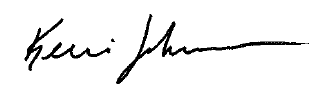 Kerri Johnson